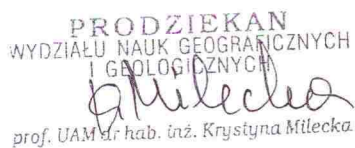 PRODZIEKAN
WYDZIAŁU NAUK GEOGRAFICZNYCH
I GEOLOGICZNYCH
K Milecka
prof. UAM dr hab. inż. Krystyna Milecka